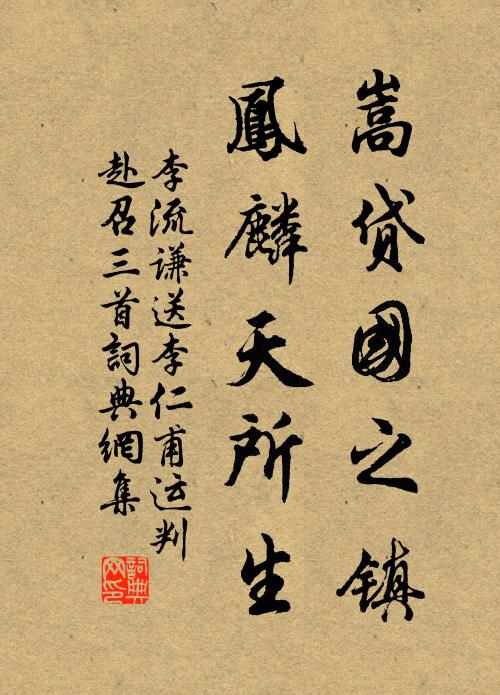 嵩贷國之镇
鳳麟天所生
李流谦送李仁甫运判
赴召三首詞典網集
詞典网印